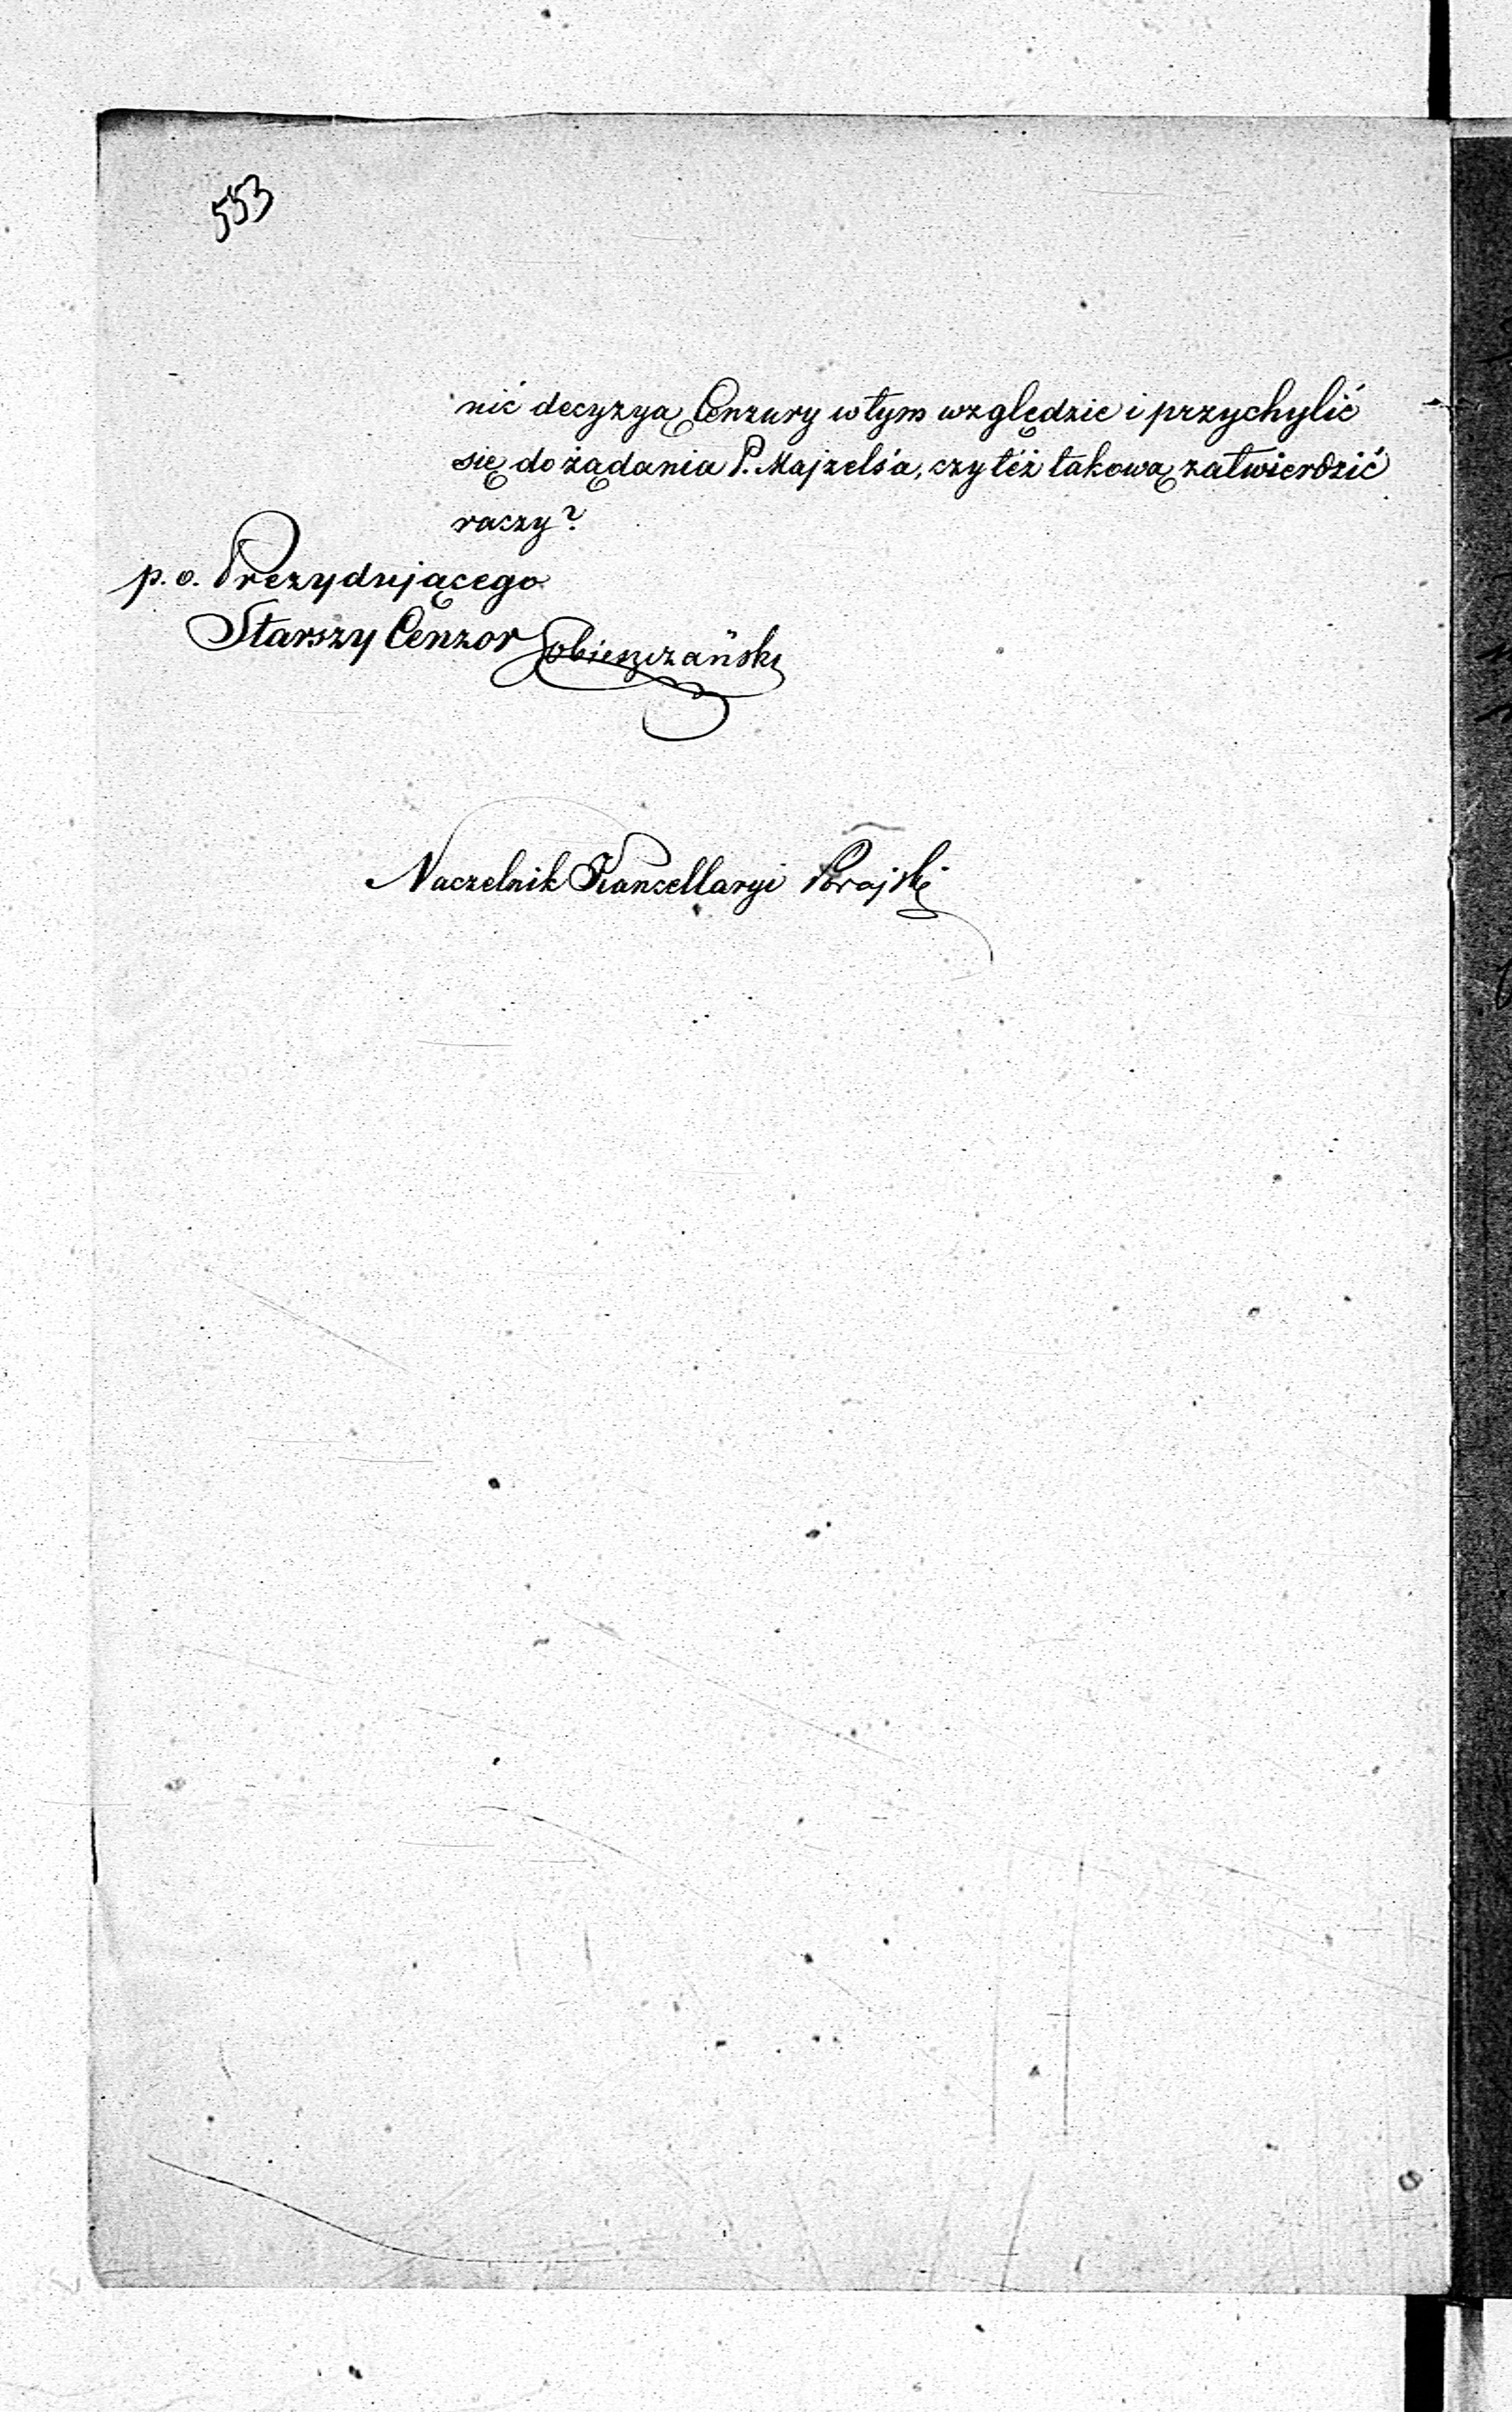 553
nić decyzyą Cenzury w tym względzie i przychylić
się do żądania P. Majzels'a, czy téż takową zatwierdzić
raczy?
p. o. Prezydującego
Starszy Cenzor Sobieszczański
Naczelnik Kancellaryi